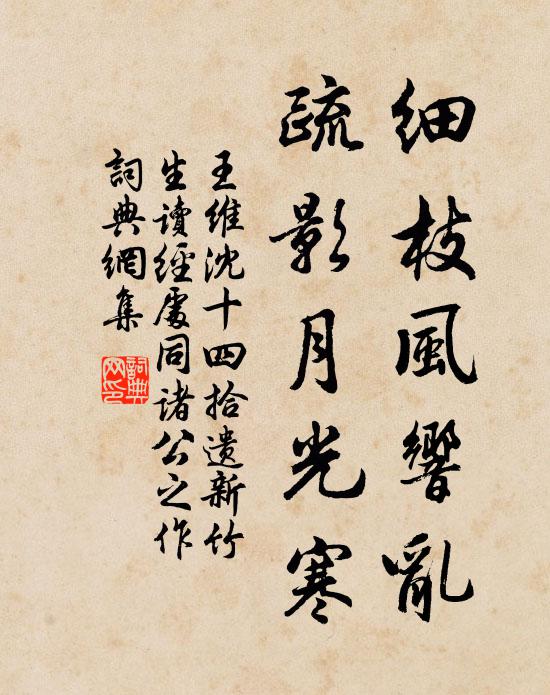 細枝風響亂
疏影月光寒
王維沈十四拾遺新竹
生讀經處同諸公之作
詞典網集
詞典
网印